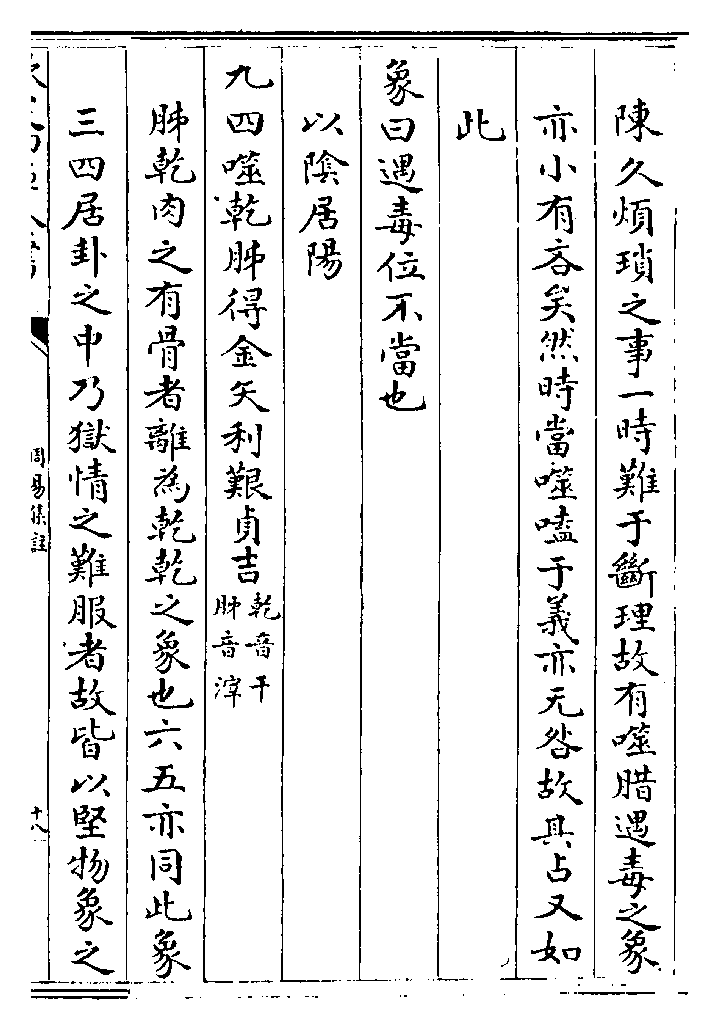 陳久煩瑣之事一時難于斷理故有噬腊遇毒之象
亦小有吝矣然時當噬嗑于義亦无咎故其占又如
此
象曰遇毒位不當也
以陰居陽
九四噬乾胏得金矢利艱貞吉乾音干胏音滓
胏乾肉之有骨者離為乾乾之象也六五亦同此象
三四居卦之中乃獄情之難服者故皆以堅物象之
周易集註
十八